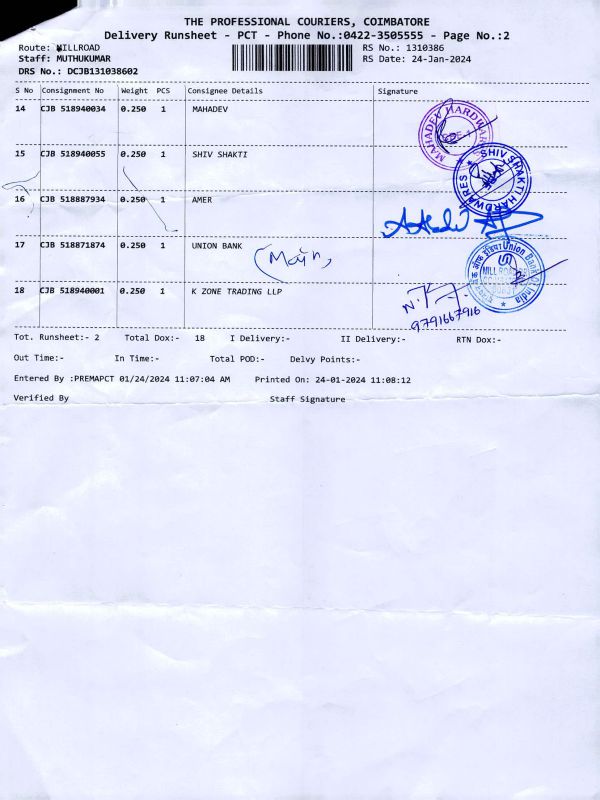 THE PROFESSIONAL COURIERS, COIMBATORE
Delivery Runsheet - PCT - Phone No.:0422-3505555 - Page No.:2
Route: MILLROAD RS No.: 1310386
Staff: MUTHUKUMAR RS Date: 24-Jan-2024
DRS No.: DCJB131038602
S No Consignment No Weight PCS Consignee Details Signature
14 CJB 518940034 0.250 1 MAHADEV
MAHADEV HARDWARE
15 CJB 518940055 0.250 1 SHIV SHAKTI
SHIV SHAKTI HARDWARES
16 CJB 518887934 0.250 1 AMER
17 CJB 518871874 0.250 1 UNION BANK
(Main)
Union Bank of India
18 CJB 518940001 0.250 1 K ZONE TRADING LLP
9791667916
Tot. Runsheet:- 2 Total Dox:- 18 I Delivery:- II Delivery:- RTN Dox:-
Out Time:- In Time:- Total POD:- Delvy Points:-
Entered By :PREMAPCT 01/24/2024 11:07:04 AM Printed On: 24-01-2024 11:08:12
Verified By Staff Signature